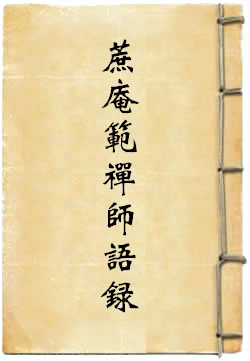 蔗庵範禪師語録